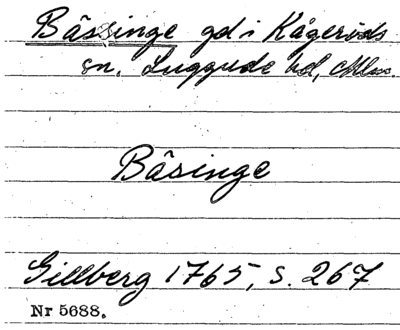 Bässinge gd i Kågeröds
sn. Luggude hd, Mlm.
Bäsinge
Gillberg 1765, s. 267
Nr 5688.